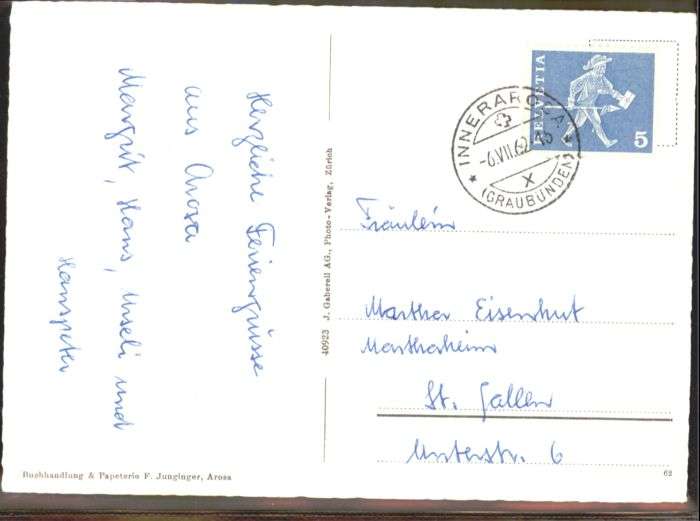 Herzliche Feriengrüsse
aus Arosa
Margrit, Hans, Urseli und
Hanspeter
40923 J. Gaberell AG., Photo-Verlag, Zürich
HELVETIA
5
INNERAROSA
(GRAUBÜNDEN)
X
Fräulein
Martha Eisenhut
Marthaheim
St. Gallen
Unterstr. 6
Buchhandlung & Papeterie F. Junginger, Arosa
62